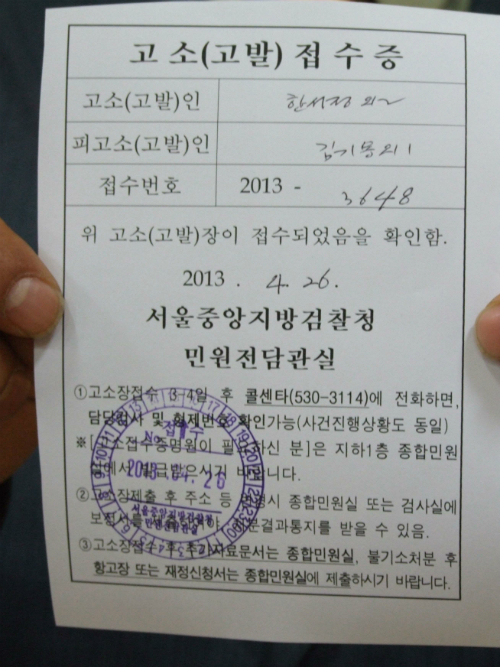 고 소 (고 발) 접 수 증
고소(고발)인 한서정 외2
피고소(고발)인 김기동외1
접수번호 2013 - 3648
위 고소(고발)장이 접수되었음을 확인함.
2013 . 4. 26.
서울중앙지방검찰청
민원전담관실
①고소장접수 3-4일 후 콜센타(530-3114)에 전화하면,
담당검사 및 형제번호 확인가능(사건진행상황도 동일)
※[고소접수증명원이 필요하신 분]은 지하1층 종합민원
실에서 발급받으시기 바랍니다.
②고소장제출 후 주소 등 변경시 종합민원실 또는 검사실에
처분결과통지를 받을 수 있음.
③고소장접수 후 추가자료문서는 종합민원실, 불기소처분 후
항고장 또는 재정신청서는 종합민원실에 제출하시기 바랍니다.
접수
No
2013. 04. 26
서울중앙지방검찰청
민원전담관실